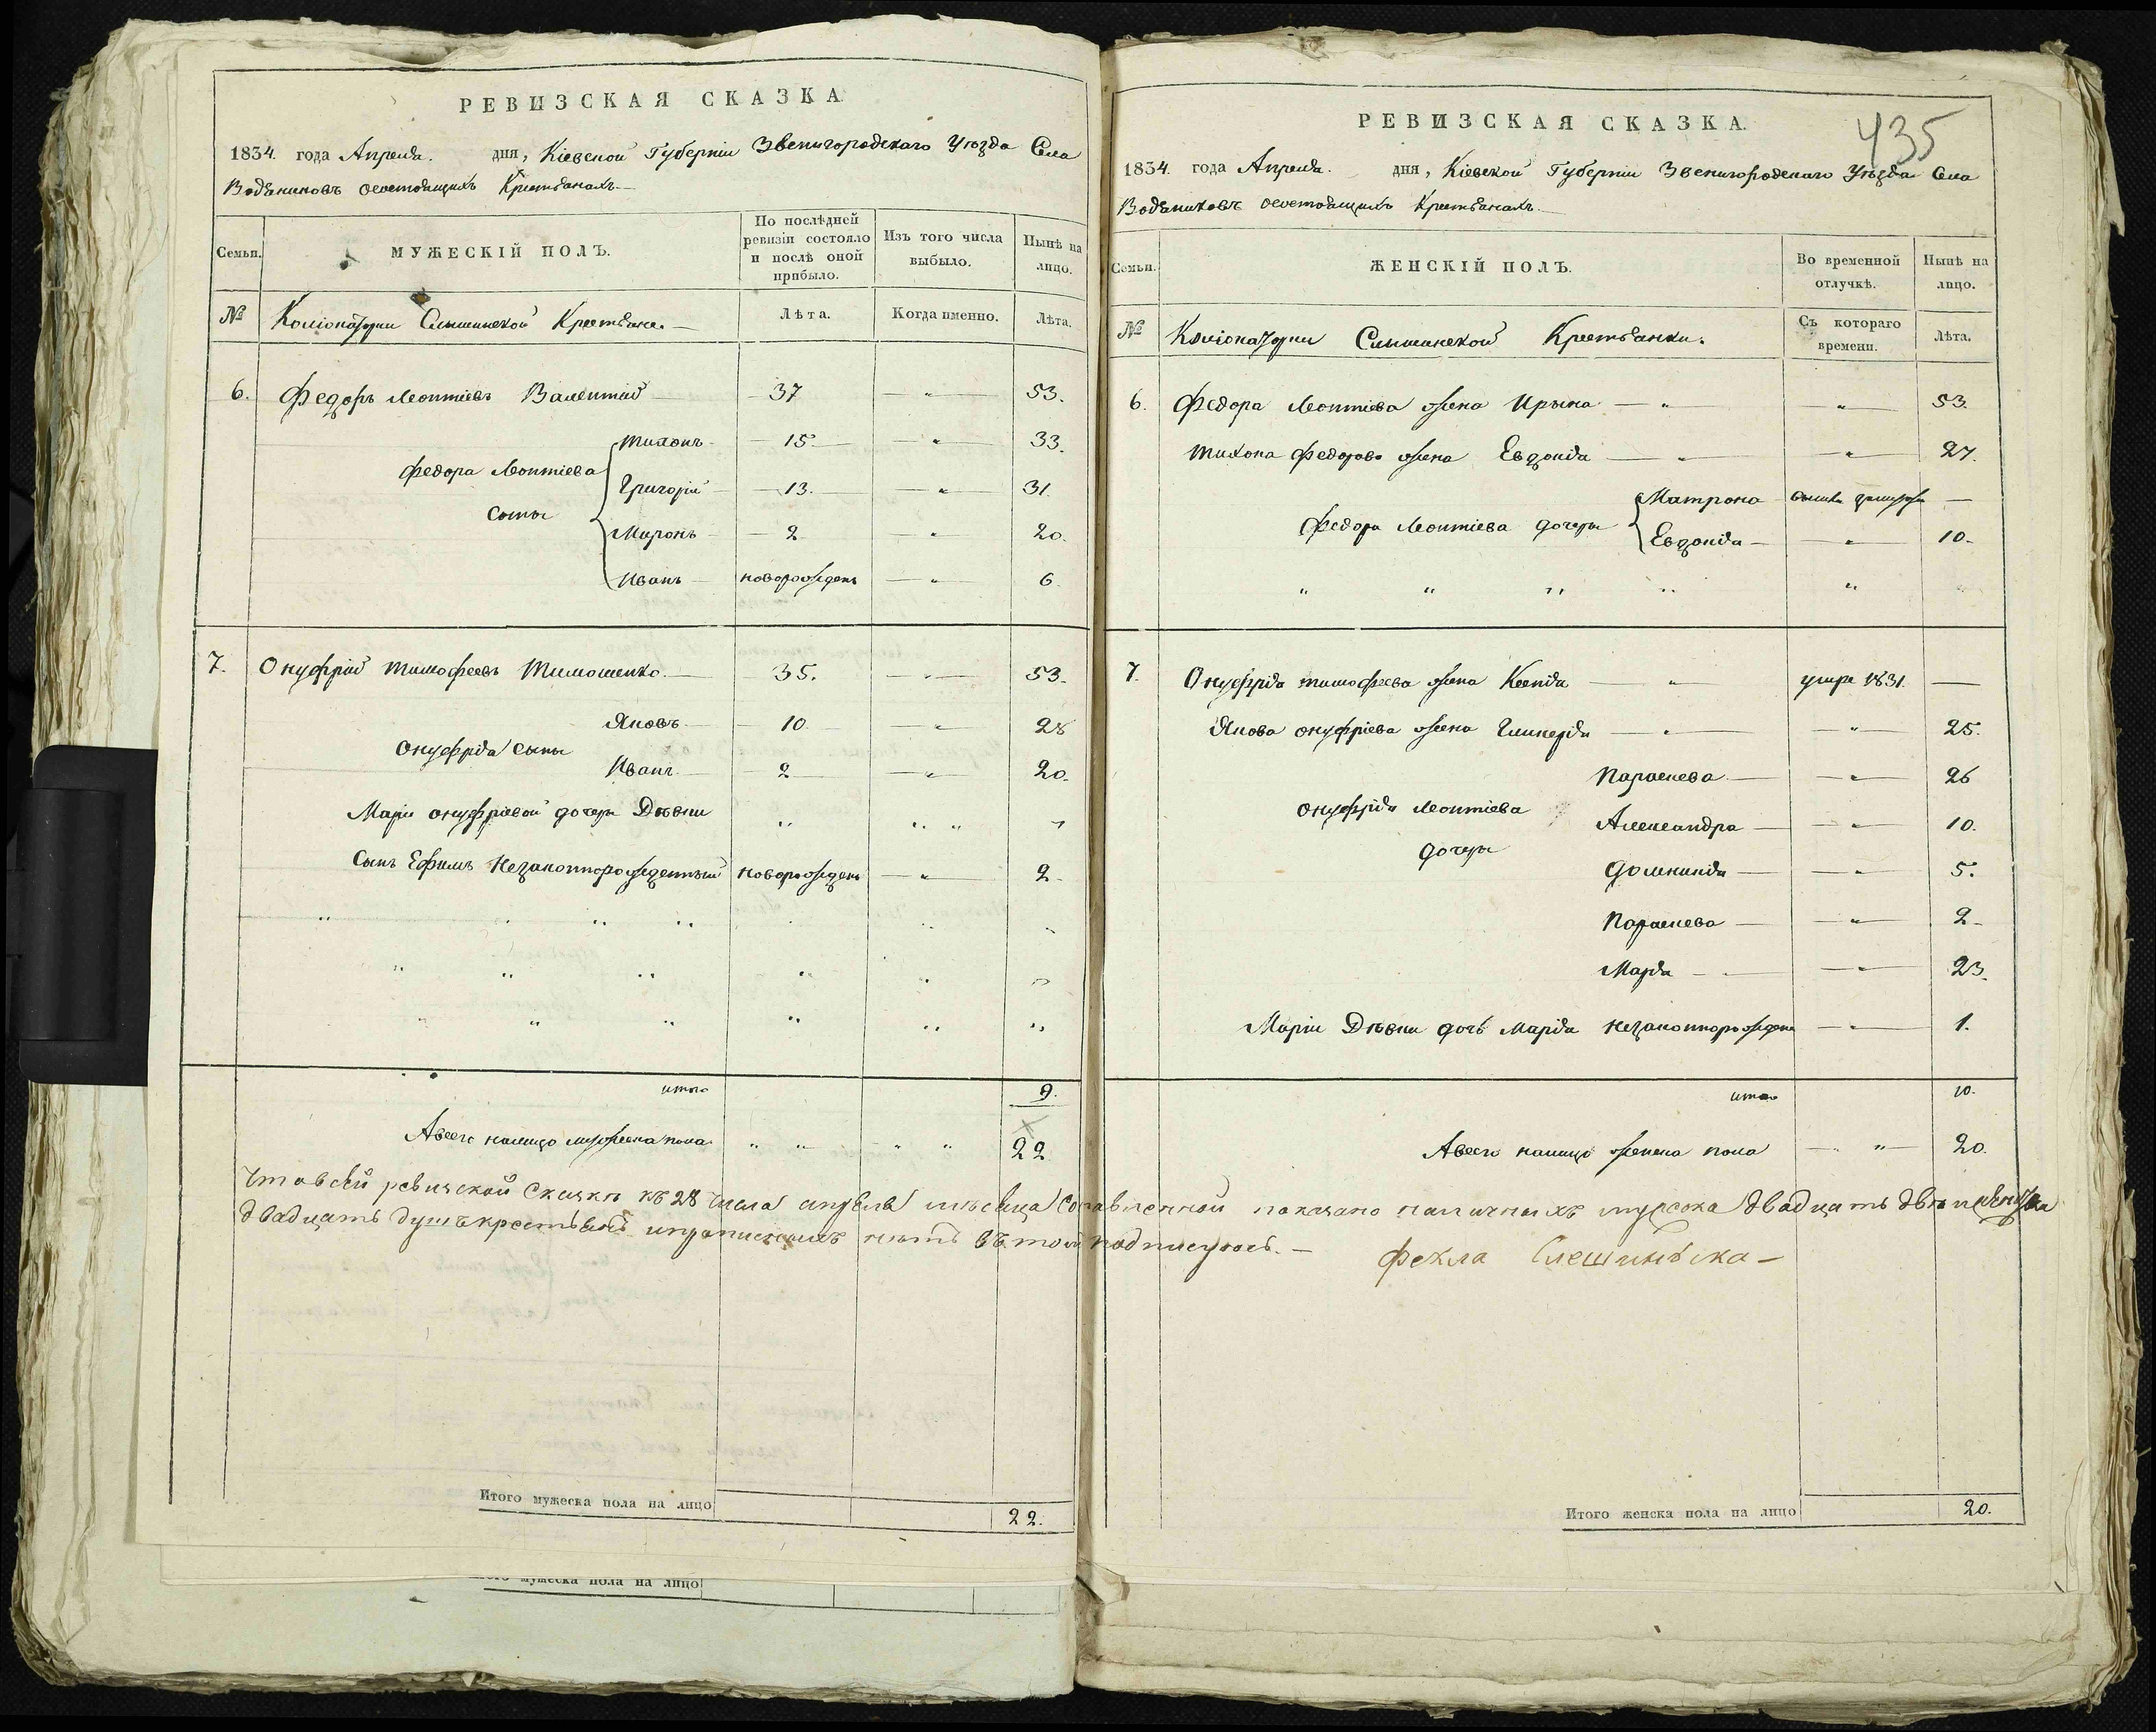 РЕВИЗСКАЯ СКАЗКА.
1834. года Апреля. дня, Кіевской Губерніи Звенигородскаго Уѣзда Села
Водяниковъ осостоящихъ Крестьянахъ.
Семьи. МУЖЕСКІЙ ПОЛЪ. По послѣдней ревизіи состояло и послѣ оной прибыло. Изъ того числа выбыло. Нынѣ на лицо.
№ Крестьяне. Лѣта. Когда именно. Лѣта.
6. Федоръ Леонтіевъ 37 „ 53.
Федора Леонтіева сыны
Тихонъ 15 „ 33.
Григорій 13. „ 31.
Миронъ 2 „ 20.
Иванъ новорожденъ „ 6
7. Онуфрій Тимофеевъ Тимошенко. 35. „ 53.
Онуфрія сыны
Яковъ 10 „ 28
Иванъ 2 „ 20.
Маріи Онуфріевой дочери Дѣвки „ „ „
Сынъ Ефимъ Незаконнорожденный новорожденъ „ 2
итого 9.
Авсего налицо мужеска пола „ „ „ „ 22
Что в сей ревизской сказки къ 28 числа апреля мѣсяца составленной показано наличныхъ мужска двадцать двѣ и женска
двадцать душъ крестьянъ и прописныхъ нѣтъ въ томъ подписуюсь.
Фекла
Итого мужеска пола на лицо 22.
мужеска пола на лицо
435
РЕВИЗСКАЯ СКАЗКА.
1834. года Апреля. дня, Кіевской Губерніи Звенигородскаго Уѣзда Села
Водяниковъ осостоящихъ Крестьянахъ.
Семьи. ЖЕНСКІЙ ПОЛЪ. Во временной отлучкѣ. Нынѣ на лицо.
№ Крестьянки. Съ котораго времени. Лѣта.
6. Федора Леонтіева жена Ирына „ „ 53.
Тихона Федорова жена Евдокія „ „ 27.
Федора Леонтіева дочери
Матрона
Евдокія „ 10.
7. Онуфрія Тимофеева жена Ксенія „ умре 1831.
Якова Онуфріева жена Гликерія „ „ 25.
Онуфрія Леонтіева дочери
Параскева „ 26
Александра „ 10.
Домникія „ 5.
Параскева „ 2
Марія „ 23.
Маріи Дѣвки дочь Марія незаконнорожденна „ 1.
итого 10.
Авсего налицо женска пола „ 20.
Итого женска пола на лицо 20.